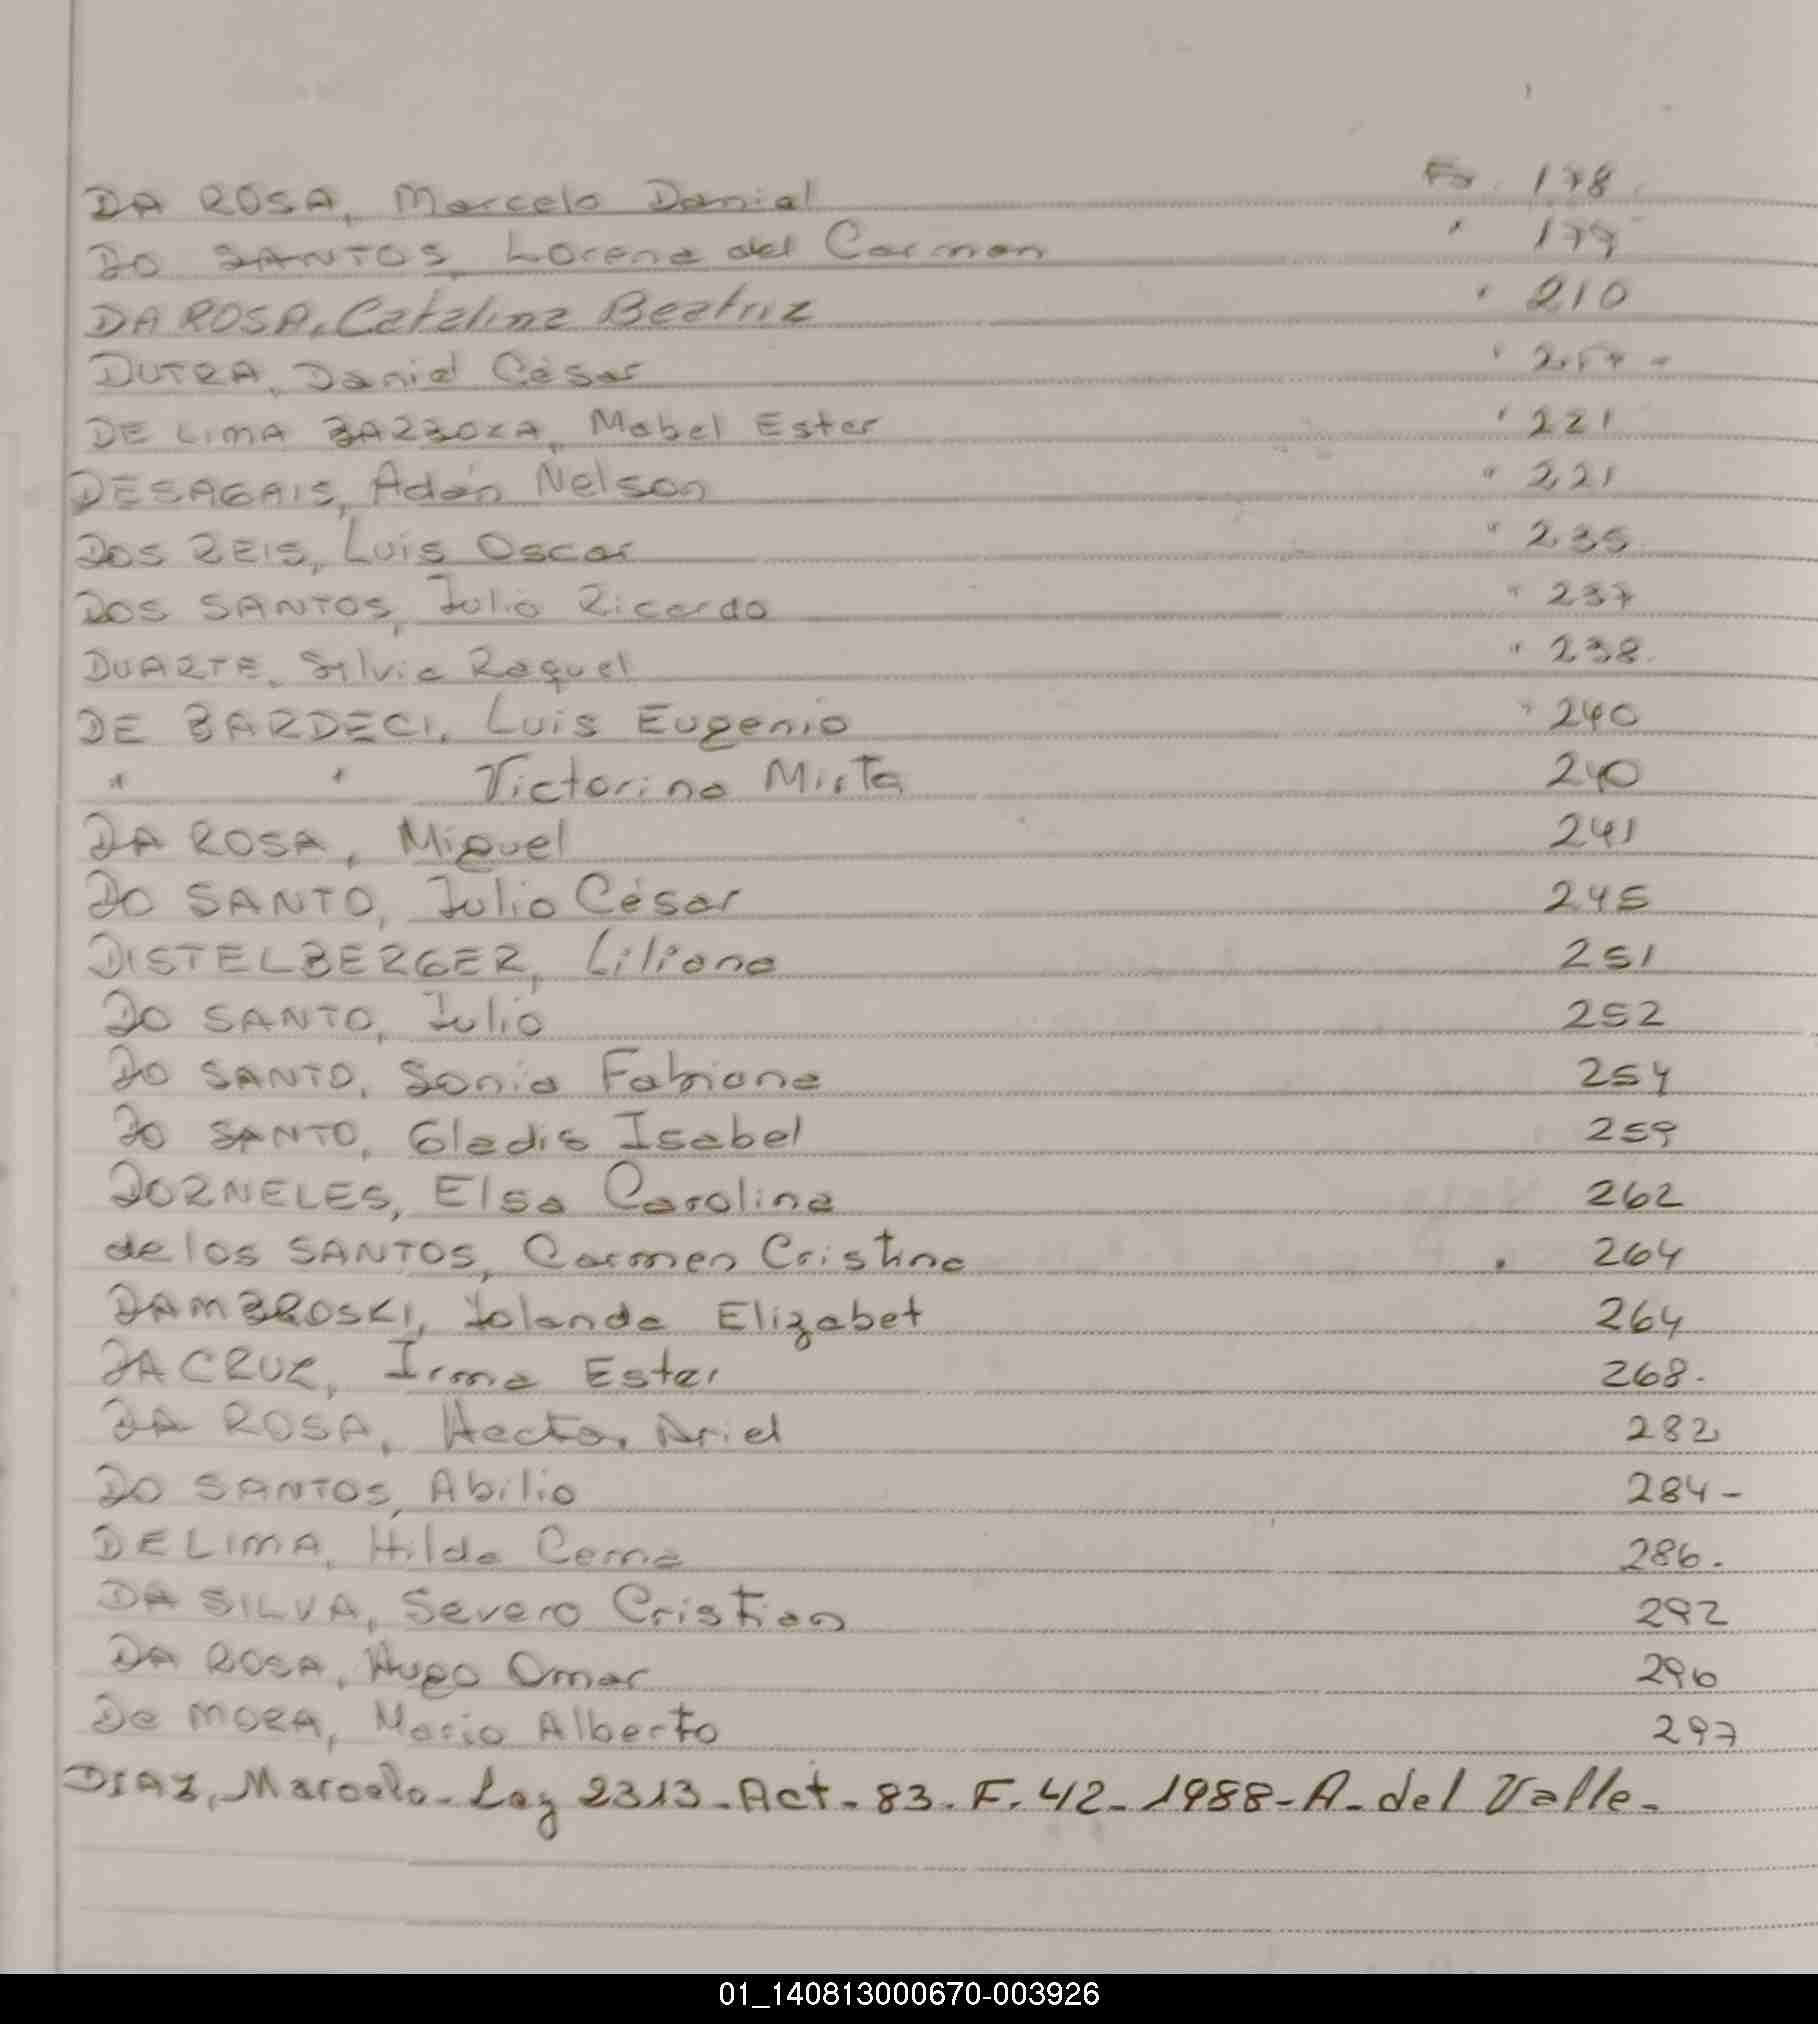 DA ROSA, Marcelo Daniel Fo. 178
DO SANTOS, Lorena del Carmen " 179
DA ROSA, Catalina Beatriz " 210
DUTRA, Daniel César "
DE LIMA BARBOZA, Mabel Ester " 221
DESAGAIS, Adán Nelson " 221
DOS REIS, Luis Oscar " 235
DOS SANTOS, Julio Ricardo " 237
DUARTE, Silvia Raquel " 238.
DE BARDECI, Luis Eugenio " 240
" " Victorina Mirta 240
DA ROSA, Miguel 241
DO SANTO, Julio César 245
DISTELBERGER, Liliana 251
DO SANTO, Julio 252
DO SANTO, Sonia Fabiana 254
DO SANTO, Gladis Isabel 259
DORNELES, Elsa Carolina 262
de los SANTOS, Carmen Cristina 264
DAMBROSKI, Iolanda Elizabet 264
DA CRUZ, Irma Ester 268.
DA ROSA, Hector Ariel 282
DO SANTOS, Abilio 284-
DE LIMA, Hilda 286.
DA SILVA, Severo Cristian 292
DA ROSA, Hugo Omar 296
De MORA, Mario Alberto 297
DIAZ, Marcelo - Leg 2313 - Act - 83 - F. 42 - 1988 - A - del Valle -
01_140813000670-003926